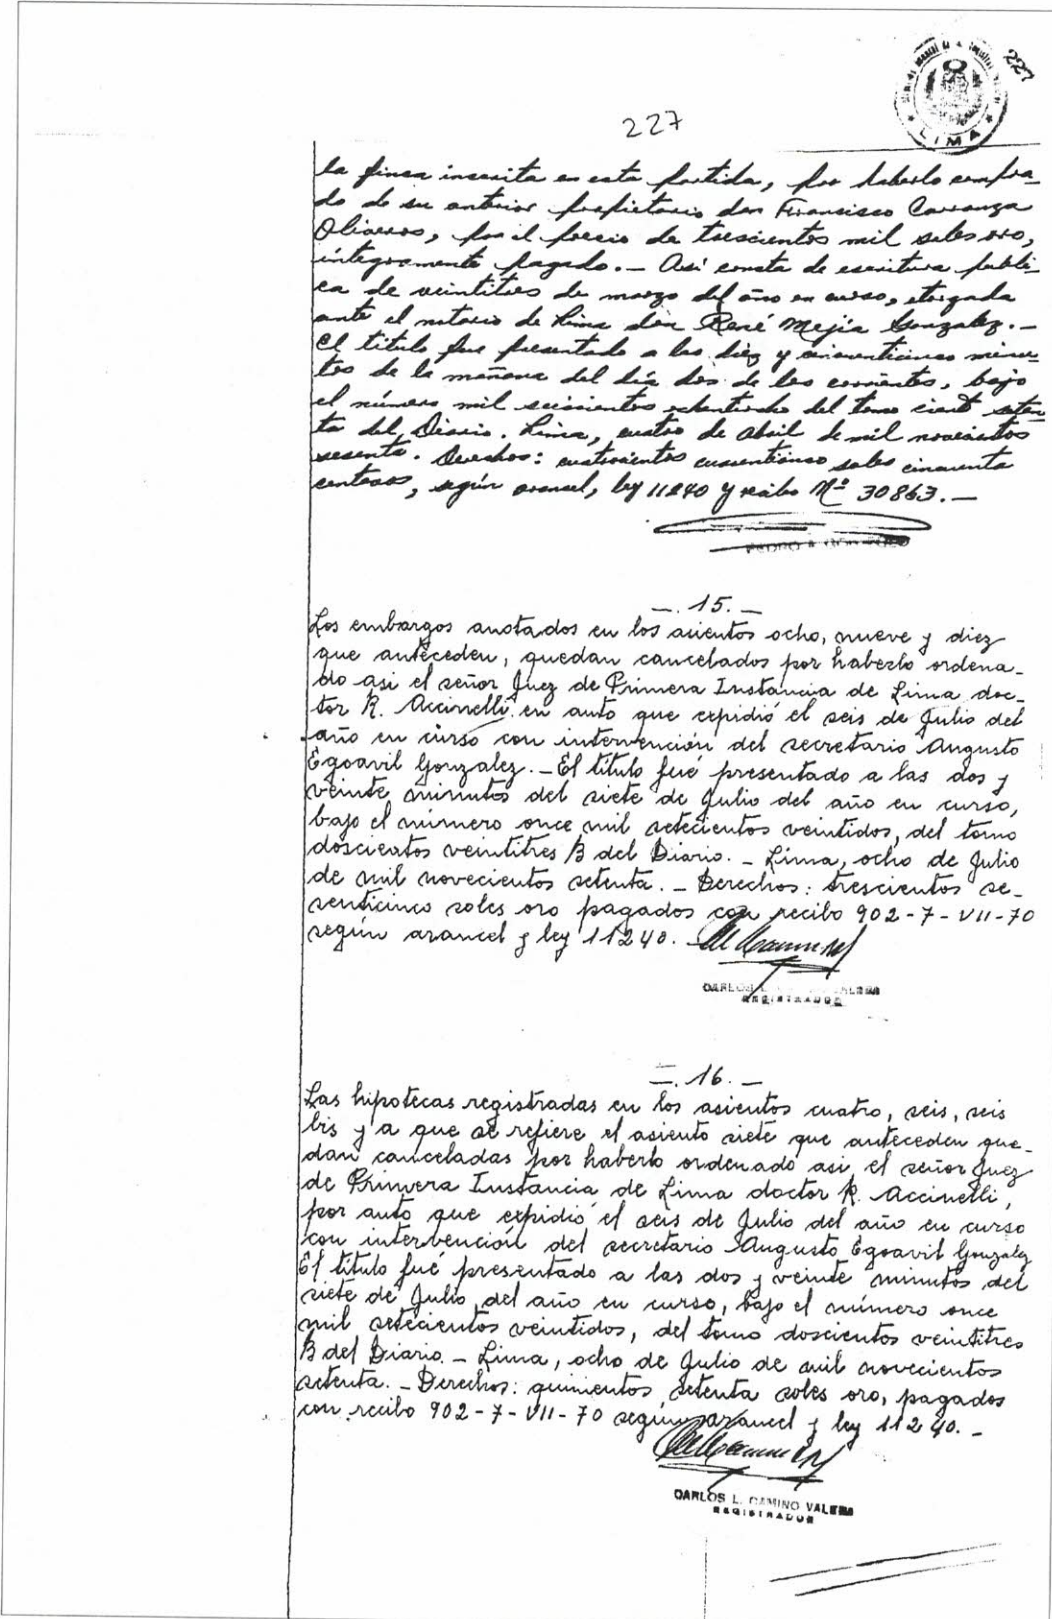 227
227
LIMA
la finca inscrita en esta partida, por haberlo compra-
do de su anterior propietario don Francisco Carranza
Oliveros, por el precio de trescientos mil soles oro,
integramente pagado. — Así consta de escritura públi-
ca de veintitres de marzo del año en curso, otorgada
ante el notario de Lima don René Mejia Gonzalez. —
El titulo fue presentado a las diez y cincuenticinco minu-
tos de la mañana del día dos de los corrientes, bajo
el número mil seiscientos ochentiocho del tomo ciento seten-
ta del Diario. Lima, cuatro de abril de mil novecientos
sesenta. Derechos: cuatrocientos cuarenticinco soles cincuenta
centavos, según arancel, ley 11240 y recibo Nº 30863. —
PEDRO A.
—. 15. —
Los embargos anotados en los asientos ocho, nueve y diez
que anteceden, quedan cancelados por haberlo ordena-
do asi el señor Juez de Primera Instancia de Lima doc-
tor R. Accinelli en auto que expidió el seis de Julio del
año en curso con intervención del secretario Augusto
Egoavil Gonzalez. — El título fué presentado a las dos y
veinte minutos del siete de Julio del año en curso,
bajo el número once mil setecientos veintidos, del tomo
doscientos veintitres B del Diario. — Lima, ocho de Julio
de mil novecientos setenta. — Derechos: trescientos se-
senticinco soles oro pagados con recibo 902-7-VII-70
según arancel y ley 11240.
CARLOS L. VALERA
REGISTRADOR
—. 16. —
Las hipotecas registradas en los asientos cuatro, seis, seis
bis y a que se refiere el asiento siete que anteceden que-
dan canceladas por haberlo ordenado asi el señor Juez
de Primera Instancia de Lima doctor R. Accinelli,
por auto que expidió el seis de Julio del año en curso
con intervención del secretario Augusto Egoavil Gonzalez
El título fué presentado a las dos y veinte minutos del
siete de Julio del año en curso, bajo el número once
mil setecientos veintidos, del tomo doscientos veintitres
B del Diario — Lima, ocho de Julio de mil novecientos
setenta. — Derechos: quinientos setenta soles oro, pagados
con recibo 902-7-VII-70 según arancel y ley 11240. —
CARLOS L. CAMINO VALERA
REGISTRADOR